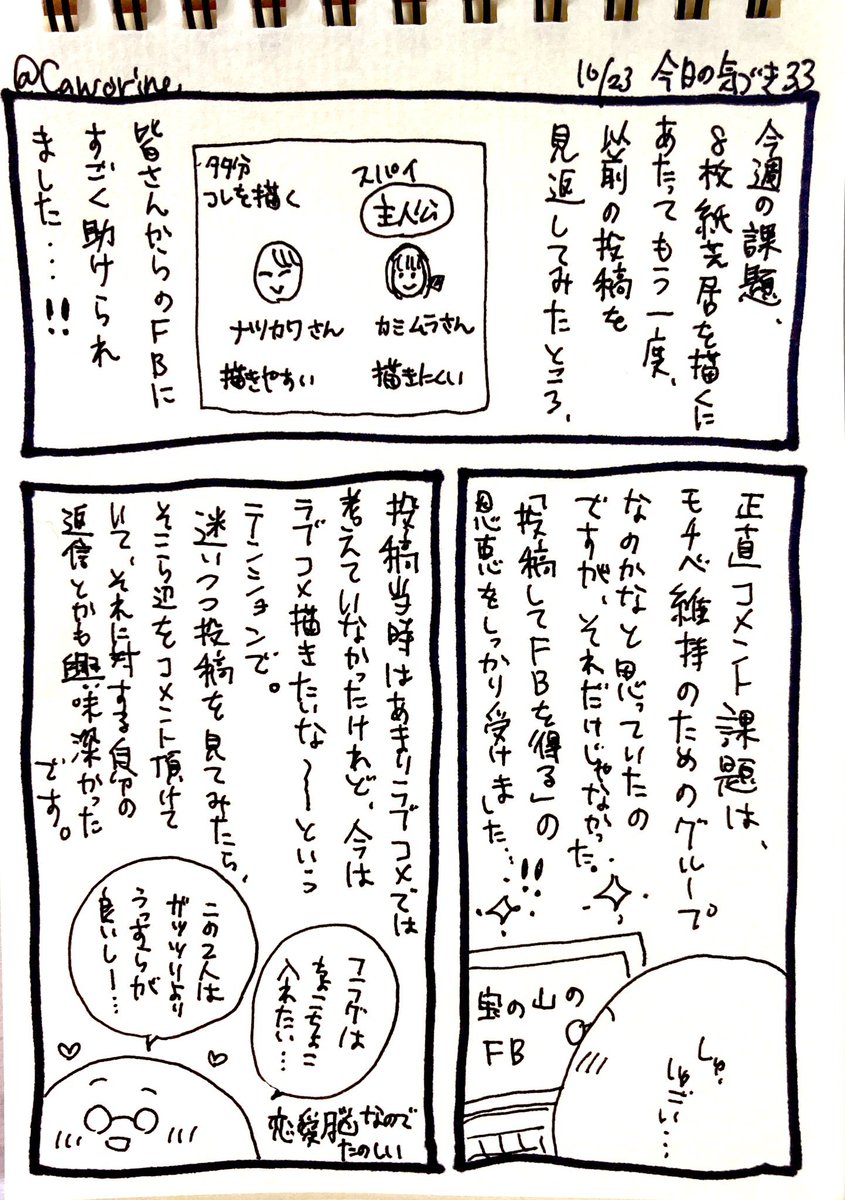 @Caworine
10/23 今日の気づき33
今週の課題、
8枚紙芝居を描くに
あたってもう一度、
以前の投稿を
見返してみたところ、
スパイ
主人公
カミムラさん
描きにくい
コレを描く
ナツカワさん
描きやすい
皆さんからのFBに
すごく助けられ
ました…!!
正直コメント課題は、
モチベ維持のためのグループ
なのかなと思っていたの
ですが、それだけじゃなかった。
「投稿してFBを得る」の
恩恵をしっかり受けました…!!
宝の山の
FB
しゅ、
しゅごい…
投稿当時はあまりラブコメでは
考えていなかったけれど、今は
ラブコメ描きたいな〜〜という
テンションで。
迷いつつ投稿を見てみたら、
そこら辺をコメント頂けて
いて、それに対する自分の
返信とかも興味深かった
です。
フラグは
ちょこちょこ
入れたい…
この2人は
ガッツリより
うっすらが
良いしー…
恋愛脳なので
たのしい